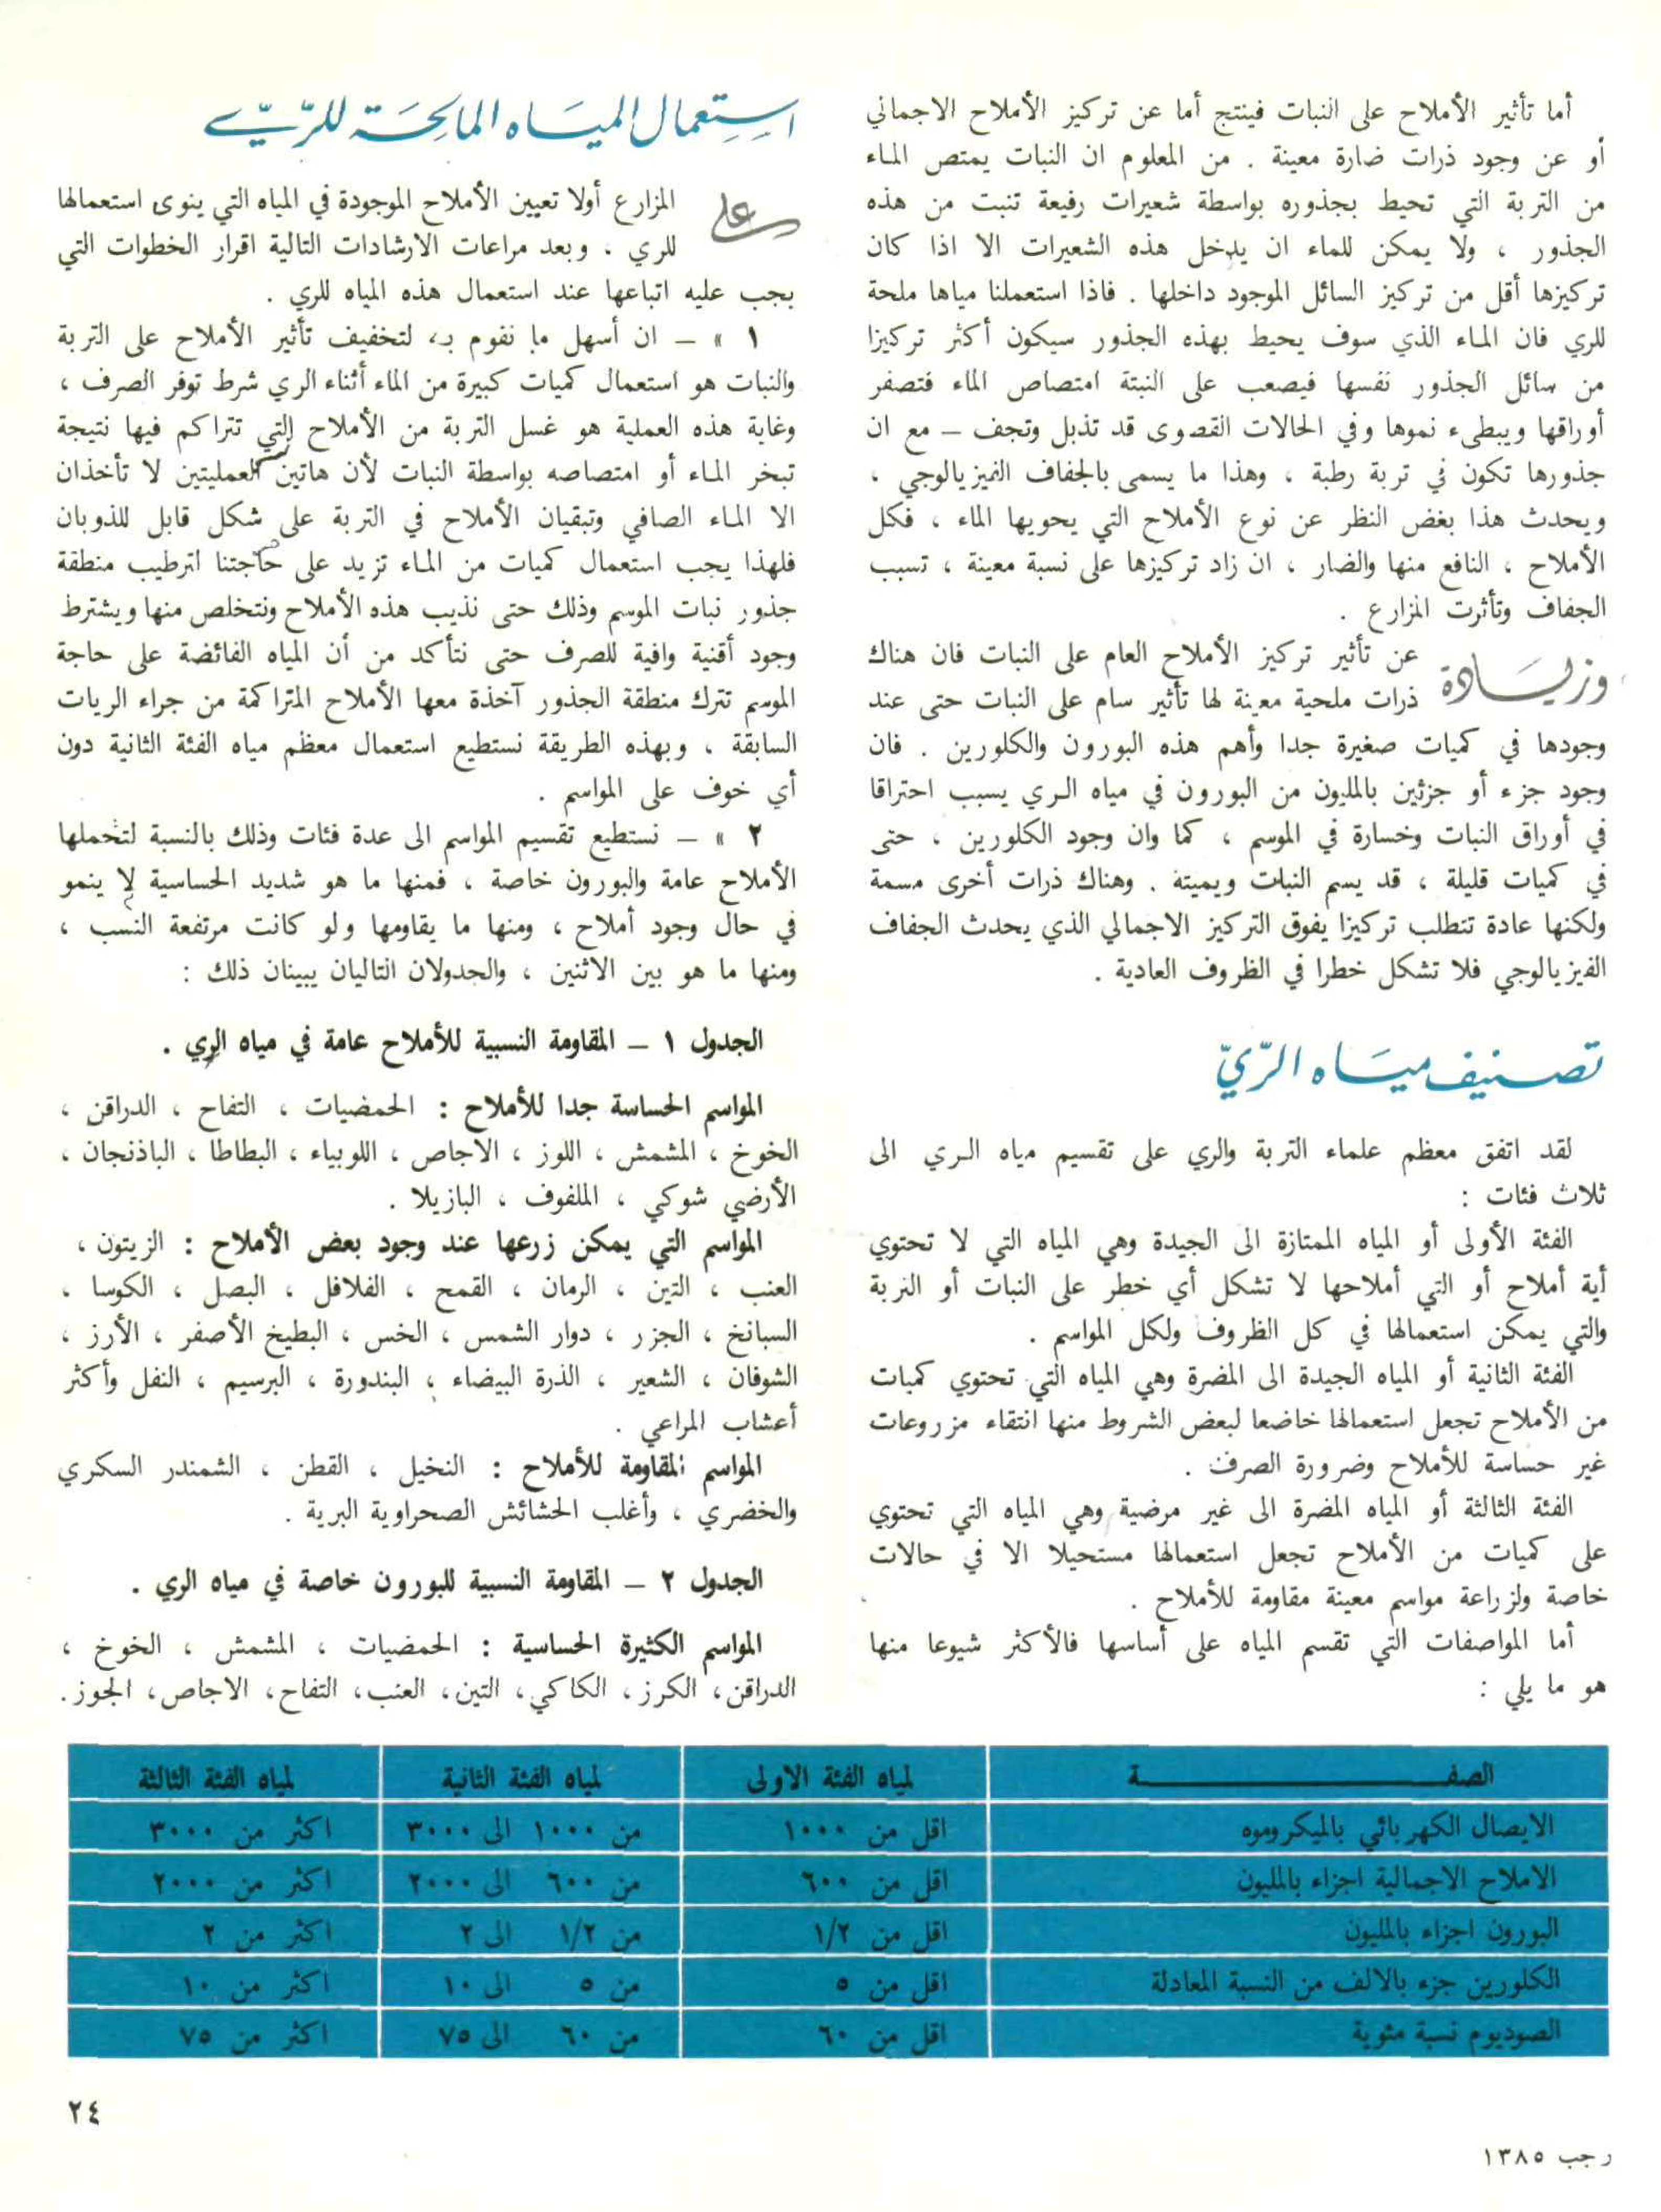 أما تأثير الأملاح على النبات فينتج أما عن تركيز الأملاح الاجمالي
أو عن وجود ذرات ضارة معينة . من المعلوم ان النبات يمتص الماء
من التربة التي تحيط بجذوره بواسطة شعيرات رفيعة تنبت من هذه
الجذور ، ولا يمكن للماء ان يدخل هذه الشعيرات الا اذا كان
تركيزها أقل من تركيز السائل الموجود داخلها . فاذا استعملنا مياها ملحة
للري فان الماء الذي سوف يحيط بهذه الجذور سيكون أكثر تركيزا
من سائل الجذور نفسها فيصعب على النبتة امتصاص الماء فتصفر
أوراقها ويبطىء نموها وفي الحالات القصوى قد تذبل وتجف – مع ان
جذورها تكون في تربة رطبة ، وهذا ما يسمى بالجفاف الفيزيالوجي ،
ويحدث هذا بغض النظر عن نوع الأملاح التي يحويها الماء ، فكل
الأملاح ، النافع منها والضار ، ان زاد تركيزها على نسبة معينة ، تسبب
الجفاف وتأثرت المزارع .
وزيادة عن تأثير تركيز الأملاح العام على النبات فان هناك
ذرات ملحية معينة لها تأثير سام على النبات حتى عند
وجودها في كميات صغيرة جدا وأهم هذه البورون والكلورين . فان
وجود جزء أو جزئين بالمليون من البورون في مياه الري يسبب احتراقا
في أوراق النبات وخسارة في الموسم ، كما وان وجود الكلورين ، حتى
في كميات قليلة ، قد يسم النبات ويميته . وهناك ذرات أخرى مسمة
ولكنها عادة تتطلب تركيزا يفوق التركيز الاجمالي الذي يحدث الجفاف
الفيزيالوجي فلا تشكل خطرا في الظروف العادية .
تصنيف مياه الرّيّ
لقد اتفق معظم علماء التربة والري على تقسيم مياه الري الى
ثلاث فئات :
الفئة الأولى أو المياه الممتازة الى الجيدة وهي المياه التي لا تحتوي
أية أملاح أو التي أملاحها لا تشكل أي خطر على النبات أو التربة
والتي يمكن استعمالها في كل الظروف ولكل المواسم .
الفئة الثانية أو المياه الجيدة الى المضرة وهي المياه التي تحتوي كميات
من الأملاح تجعل استعمالها خاضعا لبعض الشروط منها انتقاء مزروعات
غير حساسة للأملاح وضرورة الصرف .
الفئة الثالثة أو المياه المضرة الى غير مرضية وهي المياه التي تحتوي
على كميات من الأملاح تجعل استعمالها مستحيلا الا في حالات
خاصة ولزراعة مواسم معينة مقاومة للأملاح .
أما المواصفات التي تقسم المياه على أساسها فالأكثر شيوعا منها
هو ما يلي :
استِعمال الميَاه المالِحَة للرّيّ
على المزارع أولا تعيين الأملاح الموجودة في المياه التي ينوى استعمالها
للري . وبعد مراعات الارشادات التالية اقرار الخطوات التي
يجب عليه اتباعها عند استعمال هذه المياه للري .
١ » – ان أسهل ما نقوم به لتخفيف تأثير الأملاح على التربة
والنبات هو استعمال كميات كبيرة من الماء أثناء الري شرط توفر الصرف ،
وغاية هذه العملية هو غسل التربة من الأملاح التي تتراكم فيها نتيجة
تبخر الماء أو امتصاصه بواسطة النبات لأن هاتين العمليتين لا تأخذان
الا الماء الصافي وتبقيان الأملاح في التربة على شكل قابل للذوبان
فلهذا يجب استعمال كميات من الماء تزيد على حاجتنا لترطيب منطقة
جذور نبات الموسم وذلك حتى نذيب هذه الأملاح ونتخلص منها ويشترط
وجود أقنية وافية للصرف حتى نتأكد من أن المياه الفائضة على حاجة
الموسم تترك منطقة الجذور آخذة معها الأملاح المتراكمة من جراء الريات
السابقة ، وبهذه الطريقة نستطيع استعمال معظم مياه الفئة الثانية دون
أي خوف على المواسم .
٢ » – نستطيع تقسيم المواسم الى عدة فئات وذلك بالنسبة لتحملها
الأملاح عامة والبورون خاصة ، فمنها ما هو شديد الحساسية لا ينمو
في حال وجود أملاح ، ومنها ما يقاومها ولو كانت مرتفعة النسب ،
ومنها ما هو بين الاثنين ، والجدولان التاليان يبينان ذلك :
الجدول ١ – المقاومة النسبية للأملاح عامة في مياه الري .
المواسم الحساسة جدا للأملاح : الحمضيات ، التفاح ، الدراقن ،
الخوخ ، المشمش ، اللوز ، الاجاص ، اللوبياء ، البطاطا ، الباذنجان ،
الأرضي شوكي ، الملفوف ، البازيلا .
المواسم التي يمكن زرعها عند وجود بعض الأملاح : الزيتون ،
العنب ، التين ، الرمان ، القمح ، الفلافل ، البصل ، الكوسا ،
السبانخ ، الجزر ، دوار الشمس ، الخس ، البطيخ الأصفر ، الأرز ،
الشوفان ، الشعير ، الذرة البيضاء ، البندورة ، البرسيم ، النفل وأكثر
أعشاب المراعي .
المواسم المقاومة للأملاح : النخيل ، القطن ، الشمندر السكري
والخضري ، وأغلب الحشائش الصحراوية البرية .
الجدول ٢ – المقاومة النسبية للبورون خاصة في مياه الري .
المواسم الكثيرة الحساسية : الحمضيات ، المشمش ، الخوخ ،
الدراقن ، الكرز ، الكاكي ، التين ، العنب ، التفاح ، الاجاص ، الجوز .
الصفـــة لمياه الفئة الاولى لمياه الفئة الثانية لمياه الفئة الثالثة
الايصال الكهربائي بالميكروموه اقل من ١٠٠٠ من ١٠٠٠ الى ٣٠٠٠ اكثر من ٣٠٠٠
الاملاح الاجمالية اجزاء بالمليون اقل من ٦٠٠ من ٦٠٠ الى ٢٠٠٠ اكثر من ٢٠٠٠
البورون اجزاء بالمليون اقل من ١/٢ من ١/٢ الى ٢ اكثر من ٢
الكلورين جزء بالالف من النسبة المعادلة اقل من ٥ من ٥ الى ١٠ اكثر من ١٠
الصوديوم نسبة مئوية اقل من ٦٠ من ٦٠ الى ٧٥ اكثر من ٧٥
٢٤
رجب ١٣٨٥